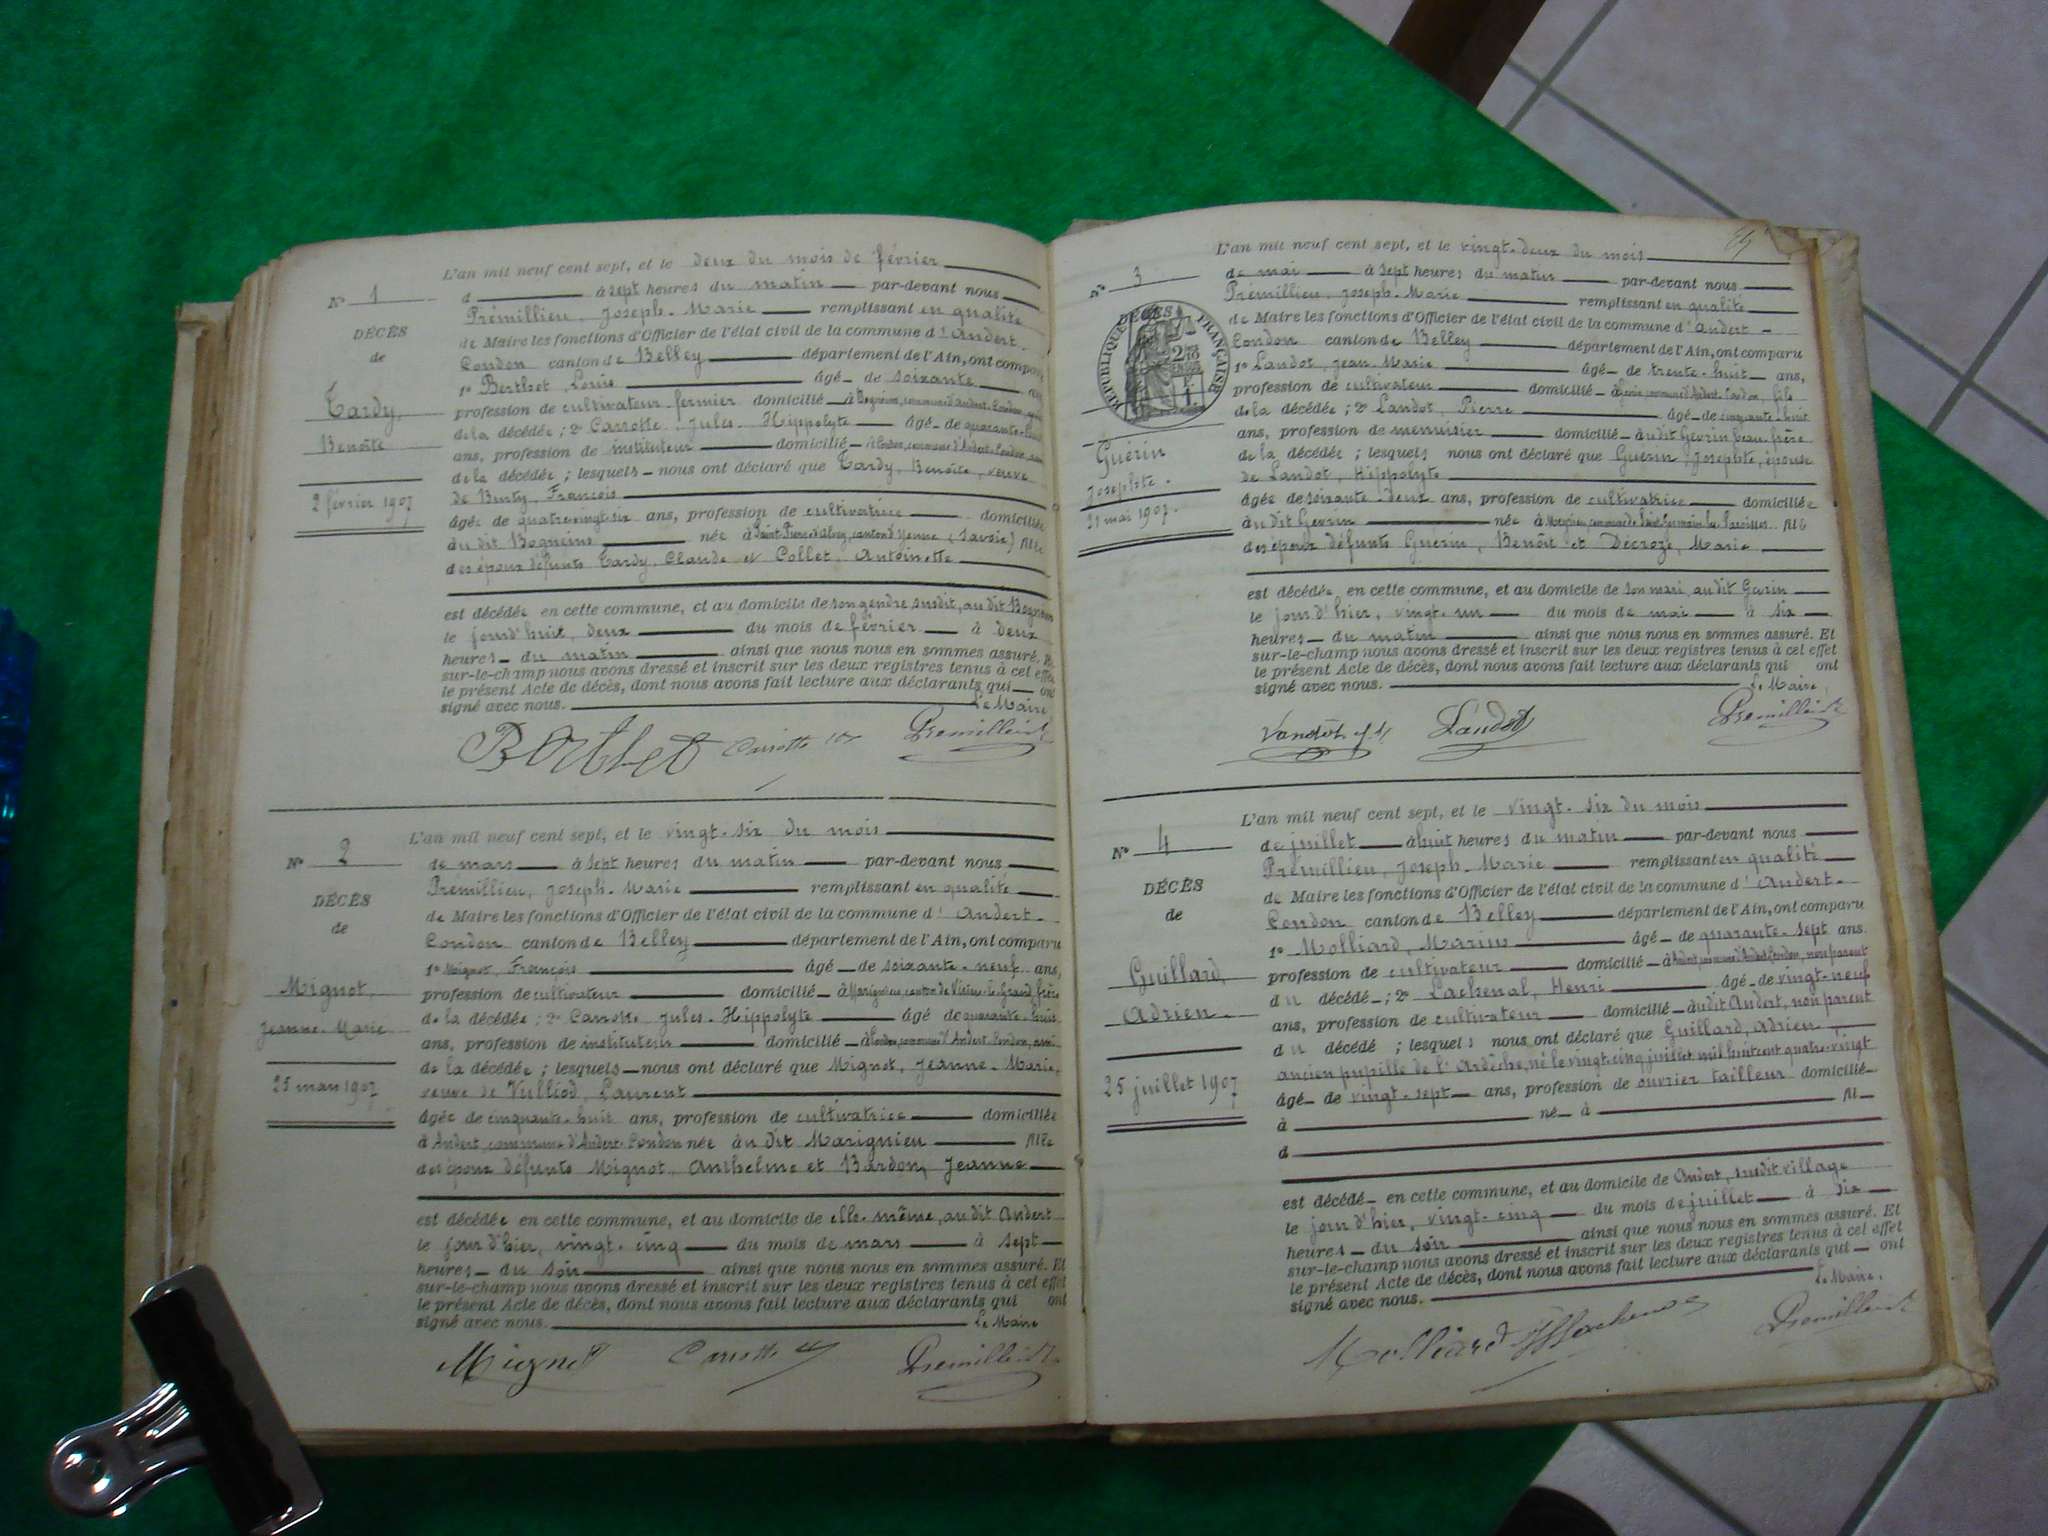 L'an mil neuf cent sept, et le deux du mois de février
Nº 1
d à sept heures du matin par-devant nous
Prémillieu, Joseph-Marie remplissant en qualité
DÉCÈS
de Maire les fonctions d'Officier de l'état civil de la commune d'Andert-
de
Condon canton de Belley département de l'Ain, ont comparu
1º Berthet, Louis âgé de soixante
Tardy,
profession de cultivateur-fermier domicilié à commune d'Andert-Condon,
de la décédée; 2º Carrotte, Jules-Hippolyte âgé de quarante-huit
Benoîte
ans, profession de instituteur domicilié à Condon, commune d'Andert-Condon,
de la décédée; lesquels nous ont déclaré que Tardy, Benoîte, veuve
2 février 1907
de Burty, François
âgée de quatre-vingt-six ans, profession de cultivatrice domiciliée
au dit Bogneins née à canton d'Yenne (Savoie) fille
des époux défunts Tardy, Claude et Collet, Antoinette
est décédée en cette commune, et au domicile de son gendre susdit, au dit
le jourd'huit, deux du mois de février à deux
heures du matin ainsi que nous nous en sommes assuré. Et
sur-le-champ nous avons dressé et inscrit sur les deux registres tenus à cet effet
le présent Acte de décès, dont nous avons fait lecture aux déclarants qui ont
signé avec nous. Le Maire
Berthet Carrotte Premillieu
L'an mil neuf cent sept, et le vingt-six du mois
Nº 2
de mars à sept heures du matin par-devant nous
Prémillieu, Joseph-Marie remplissant en qualité
DÉCÈS
de Maire les fonctions d'Officier de l'état civil de la commune d'Andert-
de
Condon canton de Belley département de l'Ain, ont comparu
1º Mignot, François âgé de soixante-neuf ans,
Mignot,
profession de cultivateur domicilié à Marignieu, canton de Virieu-le-Grand, frère
de la décédée; 2º Carrotte, Jules-Hippolyte âgé de quarante-huit
Jeanne-Marie
ans, profession de instituteur domicilié à Condon, commune d'Andert-Condon, ami
de la décédée; lesquels nous ont déclaré que Mignot, Jeanne-Marie,
25 mars 1907
veuve de Vulliod, Laurent
âgée de cinquante-huit ans, profession de cultivatrice domiciliée
à Andert, commune d'Andert-Condon née au dit Marignieu fille
des époux défunts Mignot, Anthelme et Bardon, Jeanne
est décédée en cette commune, et au domicile de elle-même, au dit Andert
le jour d'hier, vingt-cinq du mois de mars à sept
heures du soir ainsi que nous nous en sommes assuré. Et
sur-le-champ nous avons dressé et inscrit sur les deux registres tenus à cet effet
le présent Acte de décès, dont nous avons fait lecture aux déclarants qui ont
signé avec nous. Le Maire
Mignot Carrotte Premillieu
L'an mil neuf cent sept, et le vingt-deux du mois
Nº 3
de mai à sept heures du matin par-devant nous
Prémillieu, Joseph-Marie remplissant en qualité
DÉCÈS
RÉPUBLIQUE FRANÇAISE
de Maire les fonctions d'Officier de l'état civil de la commune d'Andert-
Condon canton de Belley département de l'Ain, ont comparu
1º Landot, Jean-Marie âgé de trente-huit ans,
profession de cultivateur domicilié à Gevrin, commune d'Andert-Condon, fils
de la décédée; 2º Landot, Pierre âgé de cinquante-huit
ans, profession de menuisier domicilié au dit Gevrin, beau-frère
Guérin
de la décédée; lesquels nous ont déclaré que Guérin, Josephte, épouse
Josephte.
de Landot, Hippolyte
âgée de soixante-deux ans, profession de cultivatrice domiciliée
21 mai 1907.
au dit Gevrin née à commune de Saint-Germain-les-Paroisses fille
des époux défunts Guérin, Benoît et Décroze, Marie
est décédée en cette commune, et au domicile de son mari, au dit Gevrin
le jour d'hier, vingt-un du mois de mai à six
heures du matin ainsi que nous nous en sommes assuré. Et
sur-le-champ nous avons dressé et inscrit sur les deux registres tenus à cet effet
le présent Acte de décès, dont nous avons fait lecture aux déclarants qui ont
signé avec nous. Le Maire,
Landot Premillieu
L'an mil neuf cent sept, et le vingt-six du mois
Nº 4
de juillet à huit heures du matin par-devant nous
Prémillieu, Joseph-Marie remplissant en qualité
DÉCÈS
de Maire les fonctions d'Officier de l'état civil de la commune d'Andert-
de
Condon canton de Belley département de l'Ain, ont comparu
1º Molliard, Marius âgé de quarante-sept ans
Guillard,
profession de cultivateur domicilié à Andert, commune d'Andert-Condon, non parent
du décédé; 2º Lachenal, Henri âgé de vingt-neuf
Adrien.
ans, profession de cultivateur domicilié au dit Andert, non parent
du décédé; lesquels nous ont déclaré que Guillard, Adrien
25 juillet 1907
ancien pupille de l'Ardèche, né le vingt-cinq juillet mil huit cent quatre-vingt
âgé de vingt-sept ans, profession de ouvrier tailleur domicilié
à né à fil
d
est décédé en cette commune, et au domicile de Andert, susdit village
le jour d'hier, vingt-cinq du mois de juillet à six
heures du soir ainsi que nous nous en sommes assuré. Et
sur-le-champ nous avons dressé et inscrit sur les deux registres tenus à cet effet
le présent Acte de décès, dont nous avons fait lecture aux déclarants qui ont
signé avec nous. Le Maire.
Molliard Lachenal Premillieu